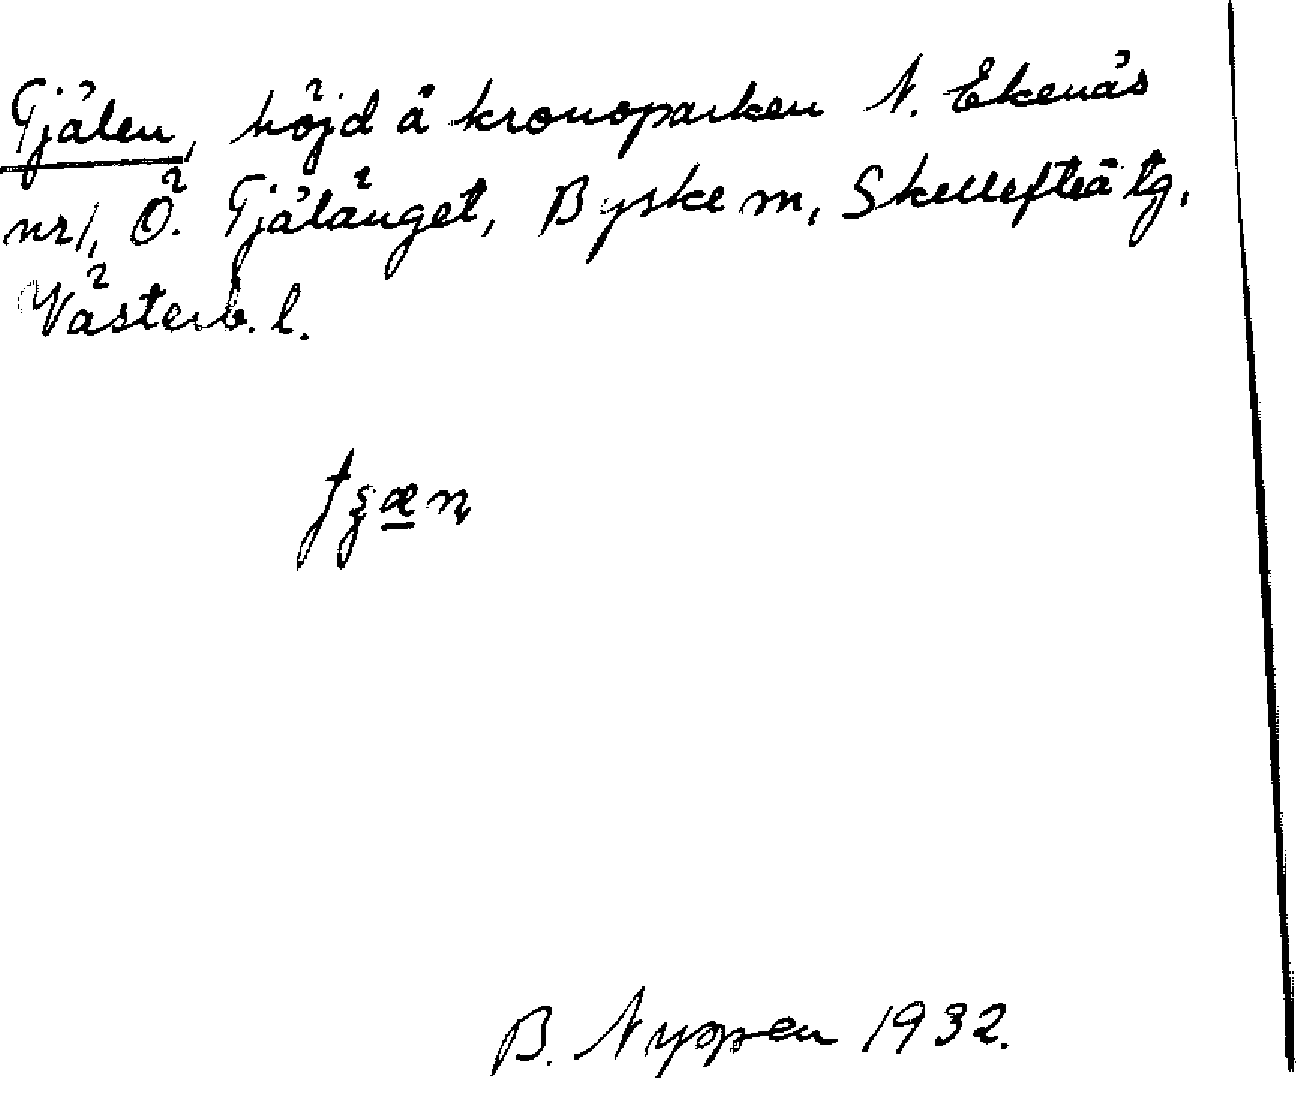 Tjälen, höjd å kronoparken N. Ekenäs
nr 1, Ö. Tjälänget, Byske m, Skellefteå tg,
Västerb. l.
B. Nyppen 1932.